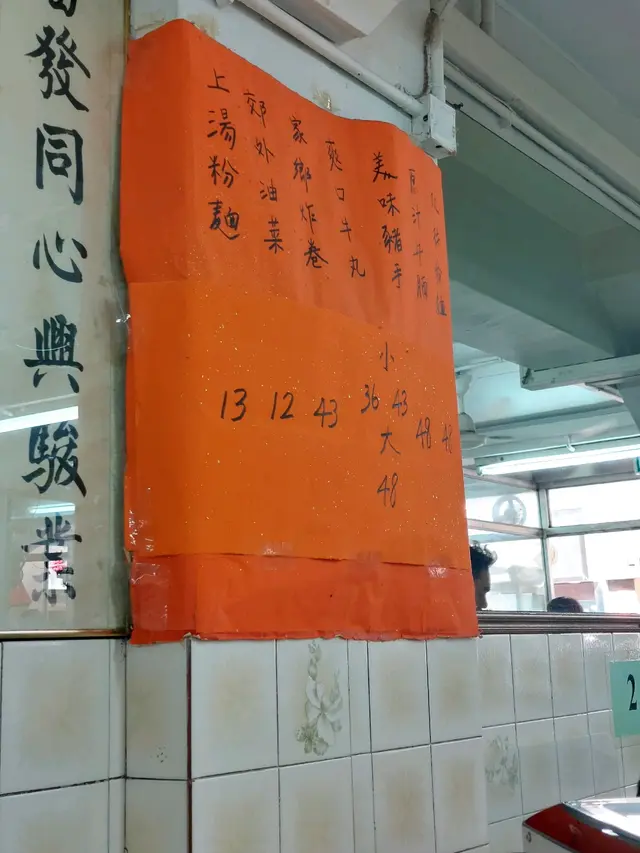 原汁牛腩
48
美味豬手
小
43
大
48
爽口牛丸
36
家鄉炸卷
43
郊外油菜
12
上湯粉麵
13
發同心興駿業
2